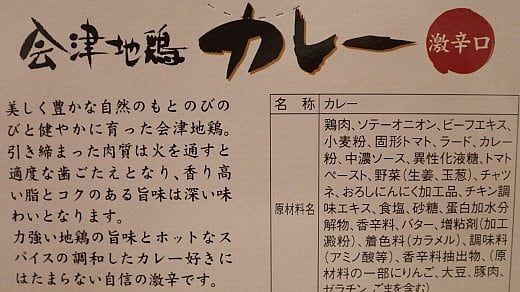 会津地鶏カレー 激辛口
美しく豊かな自然のもとのびの
びと健やかに育った会津地鶏。
引き締まった肉質は火を通すと
適度な歯ごたえとなり、香り高
い脂とコクのある旨味は深い味
わいとなります。
力強い地鶏の旨味とホットなス
パイスの調和したカレー好きに
はたまらない自信の激辛です。
名 称 カレー
原材料名
鶏肉、ソテーオニオン、ビーフエキス、
小麦粉、固形トマト、ラード、カレー
粉、中濃ソース、異性化液糖、トマト
ペースト、野菜(生姜、玉葱)、チャツ
ネ、おろしにんにく加工品、チキン調
味エキス、食塩、砂糖、蛋白加水分
解物、香辛料、バター、増粘剤(加工
澱粉)、着色料(カラメル)、調味料
(アミノ酸等)、香辛料抽出物、(原
材料の一部にりんご、大豆、豚肉、
ゼラチン、ごまを含む)